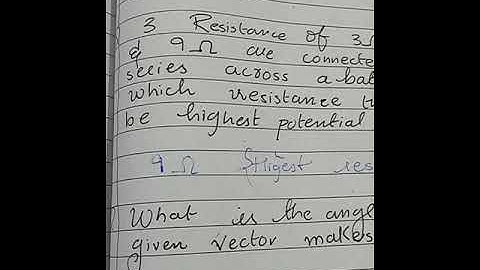 3 Resistance of 3Ω
& 9Ω are connecte
series across a bat
which resistance
be highest potential
9Ω res
What is the angle
given vector makes